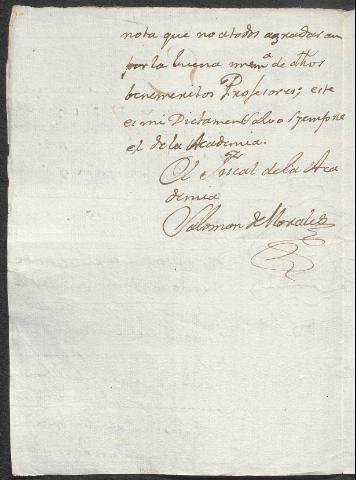 nota que no a todos agradaran
por la buena mem.a de dhos
benemeritos Profesores; este
es mi Dictamen salvo syempre
el de la Academia.
El Fiscal de la Aca
demia
Salomon de Morales